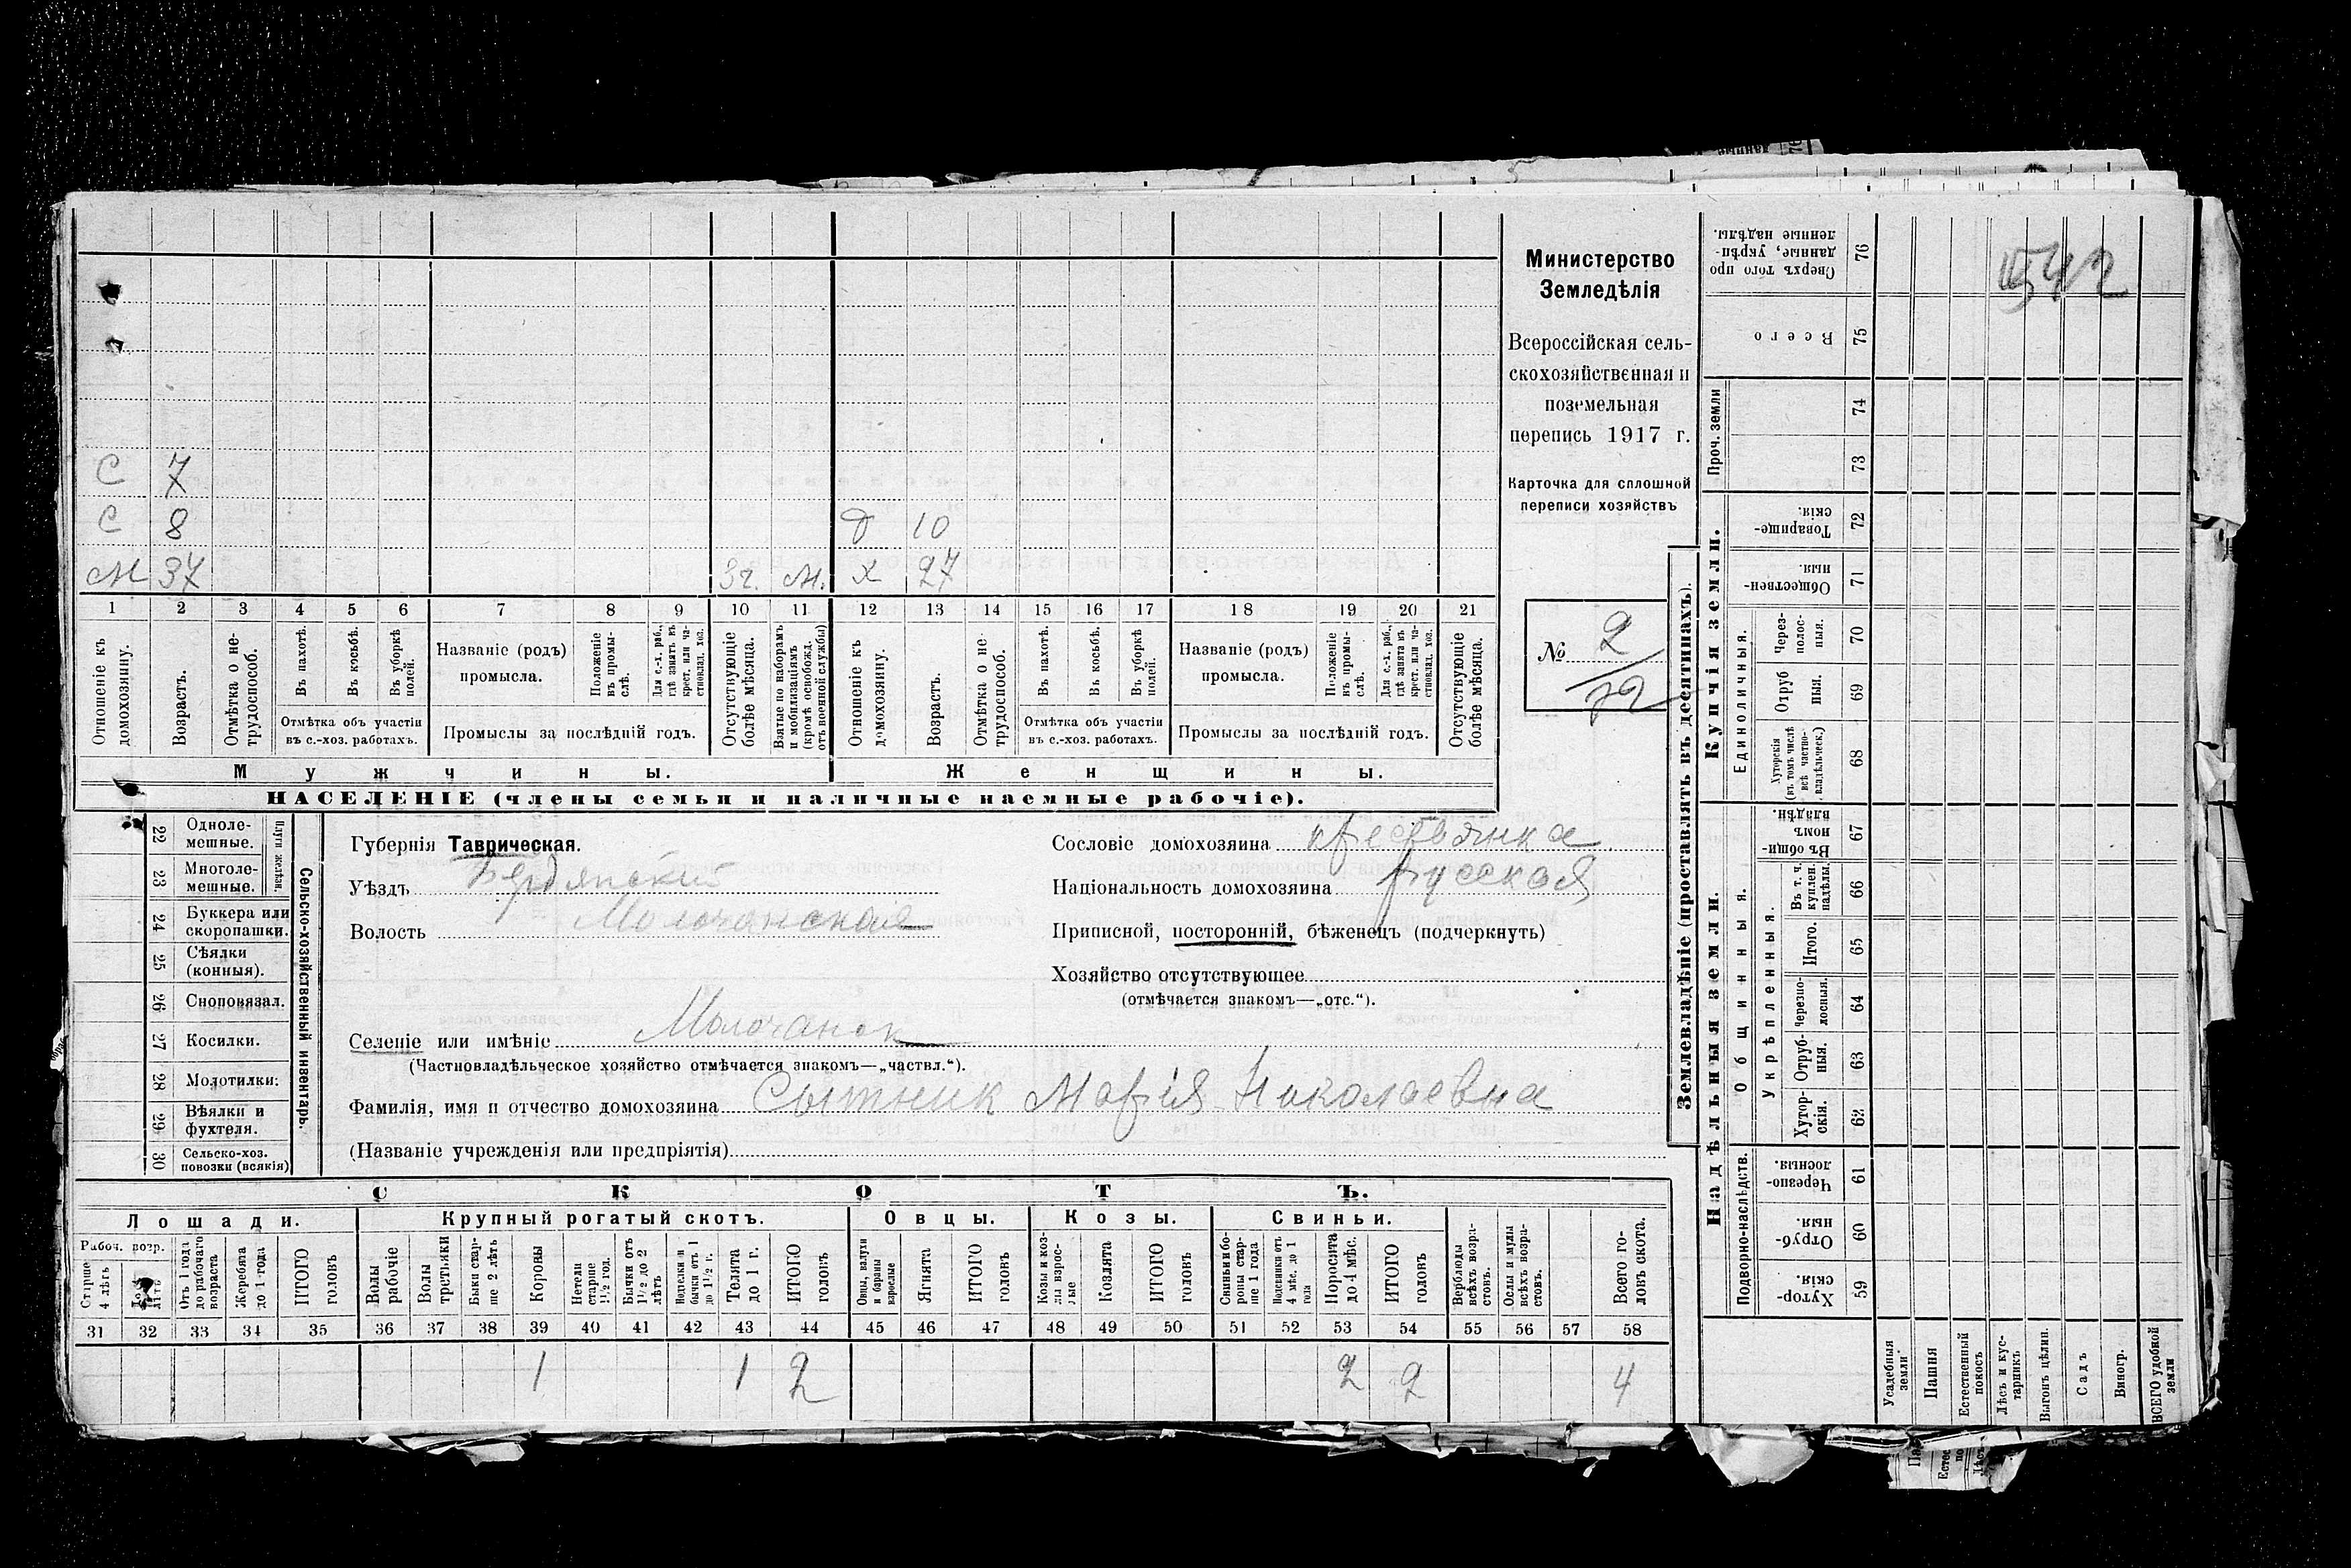 С 7
С 8 Д 10
М 37 3г. М. Х 27
1 2 3 4 5 6 7 8 9 10 11 12 13 14 15 16 17 18 19 20 21
Отношеніе къ домохозяину.
Возрастъ.
Отмѣтка о не-трудоспособ.
Въ пахотѣ.
Въ косьбѣ.
Въ уборкѣ полей.
Отмѣтка объ участіи
въ с.-хоз. работахъ.
Названіе (родъ)
промысла.
Положеніе въ промы-слѣ.
Для с.-х. раб., гдѣ занятъ въ крест. или ча-стновлад. хоз.
Промыслы за послѣдній годъ.
Отсутствующіе болѣе мѣсяца.
Взятые по наборамъ и мобилизаціямъ (кромѣ освобожд. отъ военной службы)
Отношеніе къ домохозяину.
Возрастъ.
Отмѣтка о не-трудоспособ.
Въ пахотѣ.
Въ косьбѣ.
Въ уборкѣ полей.
Отмѣтка объ участіи
въ с.-хоз. работахъ.
Названіе (родъ)
промысла.
Положеніе въ промы-слѣ.
Для с.-х. раб., гдѣ занята въ крест. или ча-стновлад. хоз.
Промыслы за послѣдній годъ.
Отсутствующіе болѣе мѣсяца.
Мужчины.
Женщины.
НАСЕЛЕНІЕ (члены семьи и наличные наемные рабочіе).
Министерство
Земледѣлія
Всероссійская сель-
скохозяйственная и
поземельная
перепись 1917 г.
Карточка для сплошной
переписи хозяйствъ
№ 2
72
22 Одноле-мешные.
23 Многоле-мешные.
Плуги желѣзн.
24 Буккера или скоропашки.
25 Сѣялки (конныя).
26 Сноповязал.
27 Косилки.
28 Молотилки:
29 Вѣялки и фухтеля.
30 Сельско-хоз. повозки (всякія)
Сельско-хозяйственный инвентарь.
Губернія Таврическая.
Уѣздъ Бердянскій
Волость Молочанская
Сословіе домохозяина крестьянка
Національность домохозяина русская
Приписной, посторонній, бѣженецъ (подчеркнуть)
Хозяйство отсутствующее
(отмѣчается знакомъ—„отс.“).
Селеніе или имѣніе Молочанск
(Частновладѣльческое хозяйство отмѣчается знакомъ—„частвл.“).
Фамилія, имя и отчество домохозяина Сытник Марія Николаевна
(Названіе учрежденія или предпріятія)
СКОТЪ.
Лошади.
Крупный рогатый скотъ.
Овцы.
Козы.
Свиньи.
Рабоч. возр.
Старше 4 лѣтъ
От 1 года до рабочаго возраста
Жеребята до 1 года
ИТОГО головъ
Волы рабочіе
Волы третьяки
Быки стар-ше 2 лѣтъ
Коровы
Нетели старше 1½ год.
Бычки отъ 1½ до 2 лѣтъ
Нетельки и бычки отъ 1 до 1½ г.
Телята до 1 г.
ИТОГО головъ
Овцы, валухи и бараны взрослые
Ягнята
ИТОГО головъ
Козы и коз-лы взрос-лые
Козлята
ИТОГО головъ
Свиньи и бо-ровы стар-ше 1 года
Подсвинки отъ 4 мѣс. до 1 года
Поросята до 4 мѣс.
ИТОГО головъ
Верблюды всѣхъ возра-стовъ.
Ослы и мулы всѣхъ возра-стовъ.
Всего го-ловъ скота.
31 32 33 34 35 36 37 38 39 40 41 42 43 44 45 46 47 48 49 50 51 52 53 54 55 56 57 58
1 1 2 2 2 4
Землевладѣніе (проставлять въ десятинахъ).
Надѣльныя земли.
Купчія земли.
Проч. земли
Подворно-наслѣдств.
Общинныя.
Укрѣпленныя.
Единоличныя.
Сверхъ того про-данные, укрѣп-ленные надѣлы. 76
Всего 75
74
73
Товарище-скія. 72
Обществен-ныя. 71
Через-полос-ныя. 70
Отруб-ныя. 69
Хуторскія (въ томъ числѣ всѣ частно-владѣльческ.) 68
Въ общин-номъ владѣн. 67
Въ т. ч. куплен. надѣлы. 66
Итого. 65
Черезпо-лосныя. 64
Отруб-ныя. 63
Хутор-скія. 62
Черезпо-лосныя. 61
Отруб-ныя. 60
Хутор-скія. 59
Усадебныя земли
Пашня
Естественный покосъ
Лѣсъ и кус-тарникъ
Выгонъ цѣлин.
Садъ
Виногр.
ВСЕГО удобной земли